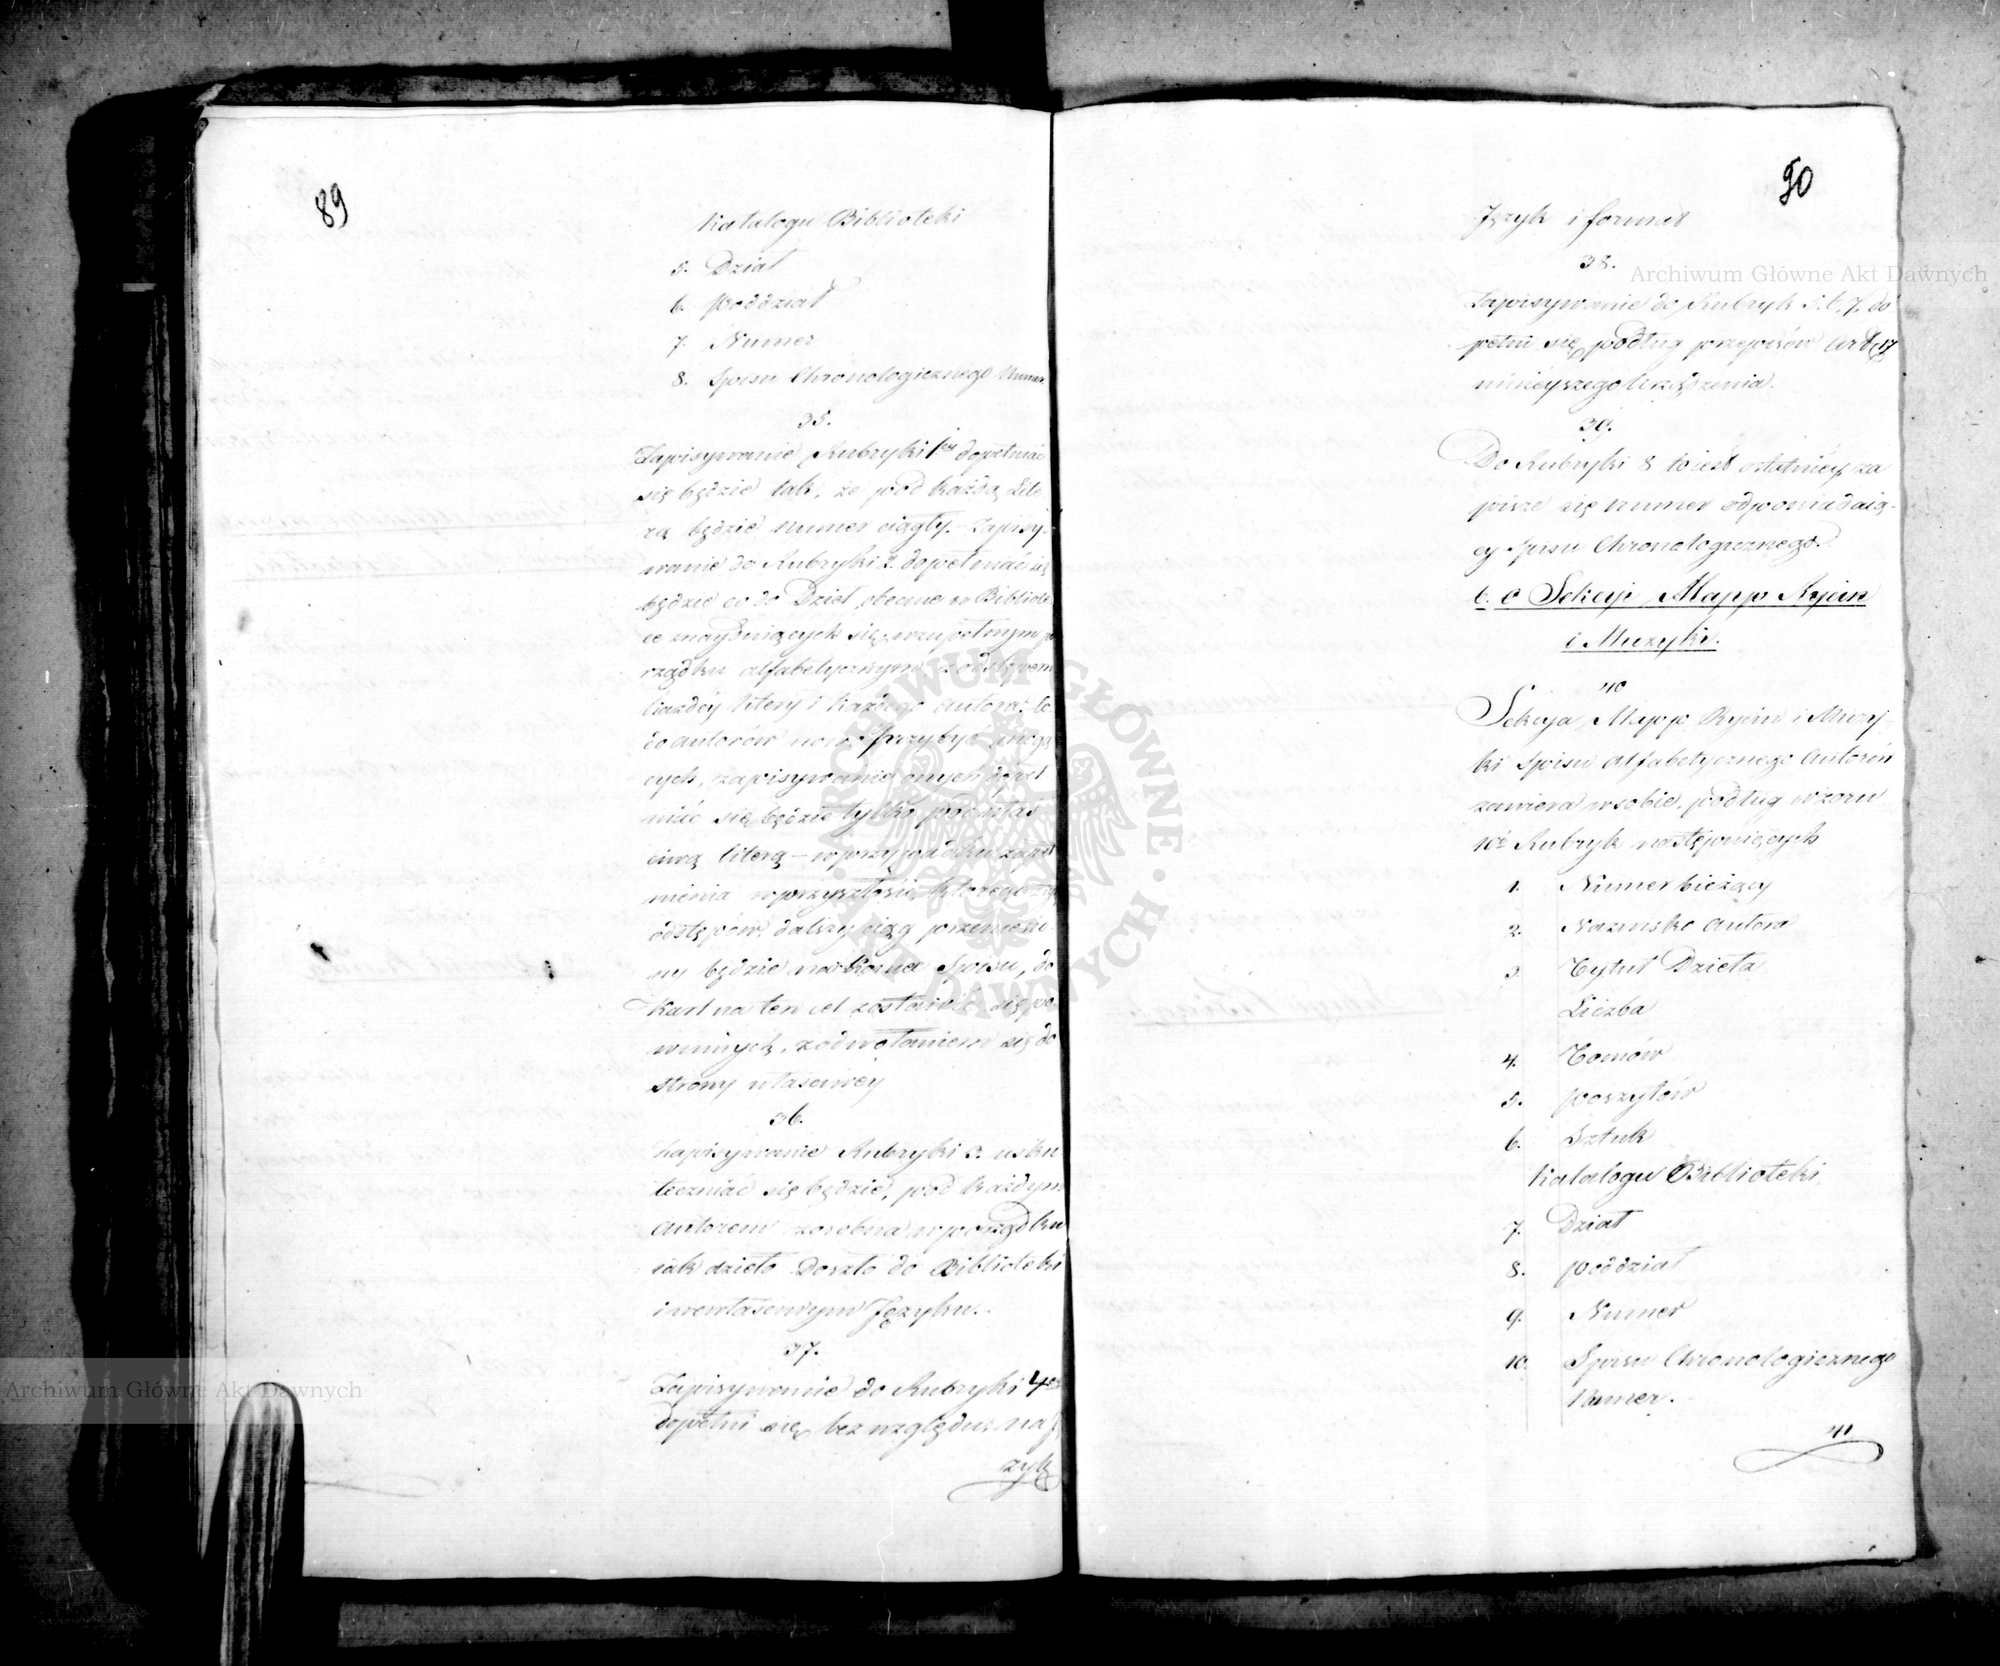 89
Katalogu Biblioteki
5. Dział
6. Poddział
7. Numer
8. Spisu Chronologicznego Numer.
35.
Zapisywanie Rubryki 1ey dopełniać
się będzie tak, że pod każdą Lite
rą będzie numer ciągły. - Zapisy-
wanie do Rubryki 2. dopełniać się
będzie co do Dzieł obecnie w Bibliote
ce znayduiących się, w zupełnym po
rządku alfabetycznym z odstępem
każdéy litery i każdego autora; co
do autorów nowo przybyć mogą
cych, zapisywanie onych dopeł
niać się będzie tylko pod właś
ciwą literą - w przypadku zapeł
nienia w przyszłości którego z
odstępów, dalszy ciąg przeniesio
ny będzie na koniec Spisu, do
Kart na ten cel zostawić się po
winnych, z odwołaniem się do
strony właściwéy
36.
Zapisywanie Rubryki 3. usku
teczniać się będzie, pod każdym
autorem zosobna w porządku
iak dzieło doszło do Biblioteki
i w właściwym Języku.
37.
Zapisywanie do Rubryki 4ey
dopełni się, bez względu na J
zyk
90
Język i format
38.
Zapisywanie do Rubryk 5. 6. 7. do
pełni się podług przepisów Art 17
ninieyszego Urządzenia.
39.
Do Rubryki 8 to iest ostatniéy, za
pisze się numer odpowiadaią-
cy Spisu Chronologicznego.
b. O Sekcyi Mapp Rycin
i Muzyki.
40
Sekcya Mapp Rycin i Muzy-
ki Spisu Alfabetycznego Autorów
zawiera w sobie, podług wzoru
10ć Rubryk następuiących
1. Numer bieżący
2. Nazwisko autora
3. Tytuł Dzieła
Liczba
4. Tomów
5. Poszytów
6. Sztuk
Katalogu Biblioteki
7. Dział
8. Poddział
9. Numer
10. Spisu Chronologicznego
Numer.
41
Archiwum Główne Akt Dawnych
Archiwum Główne Akt Dawnych
ARCHIWUM GŁÓWNE AKT DAWNYCH